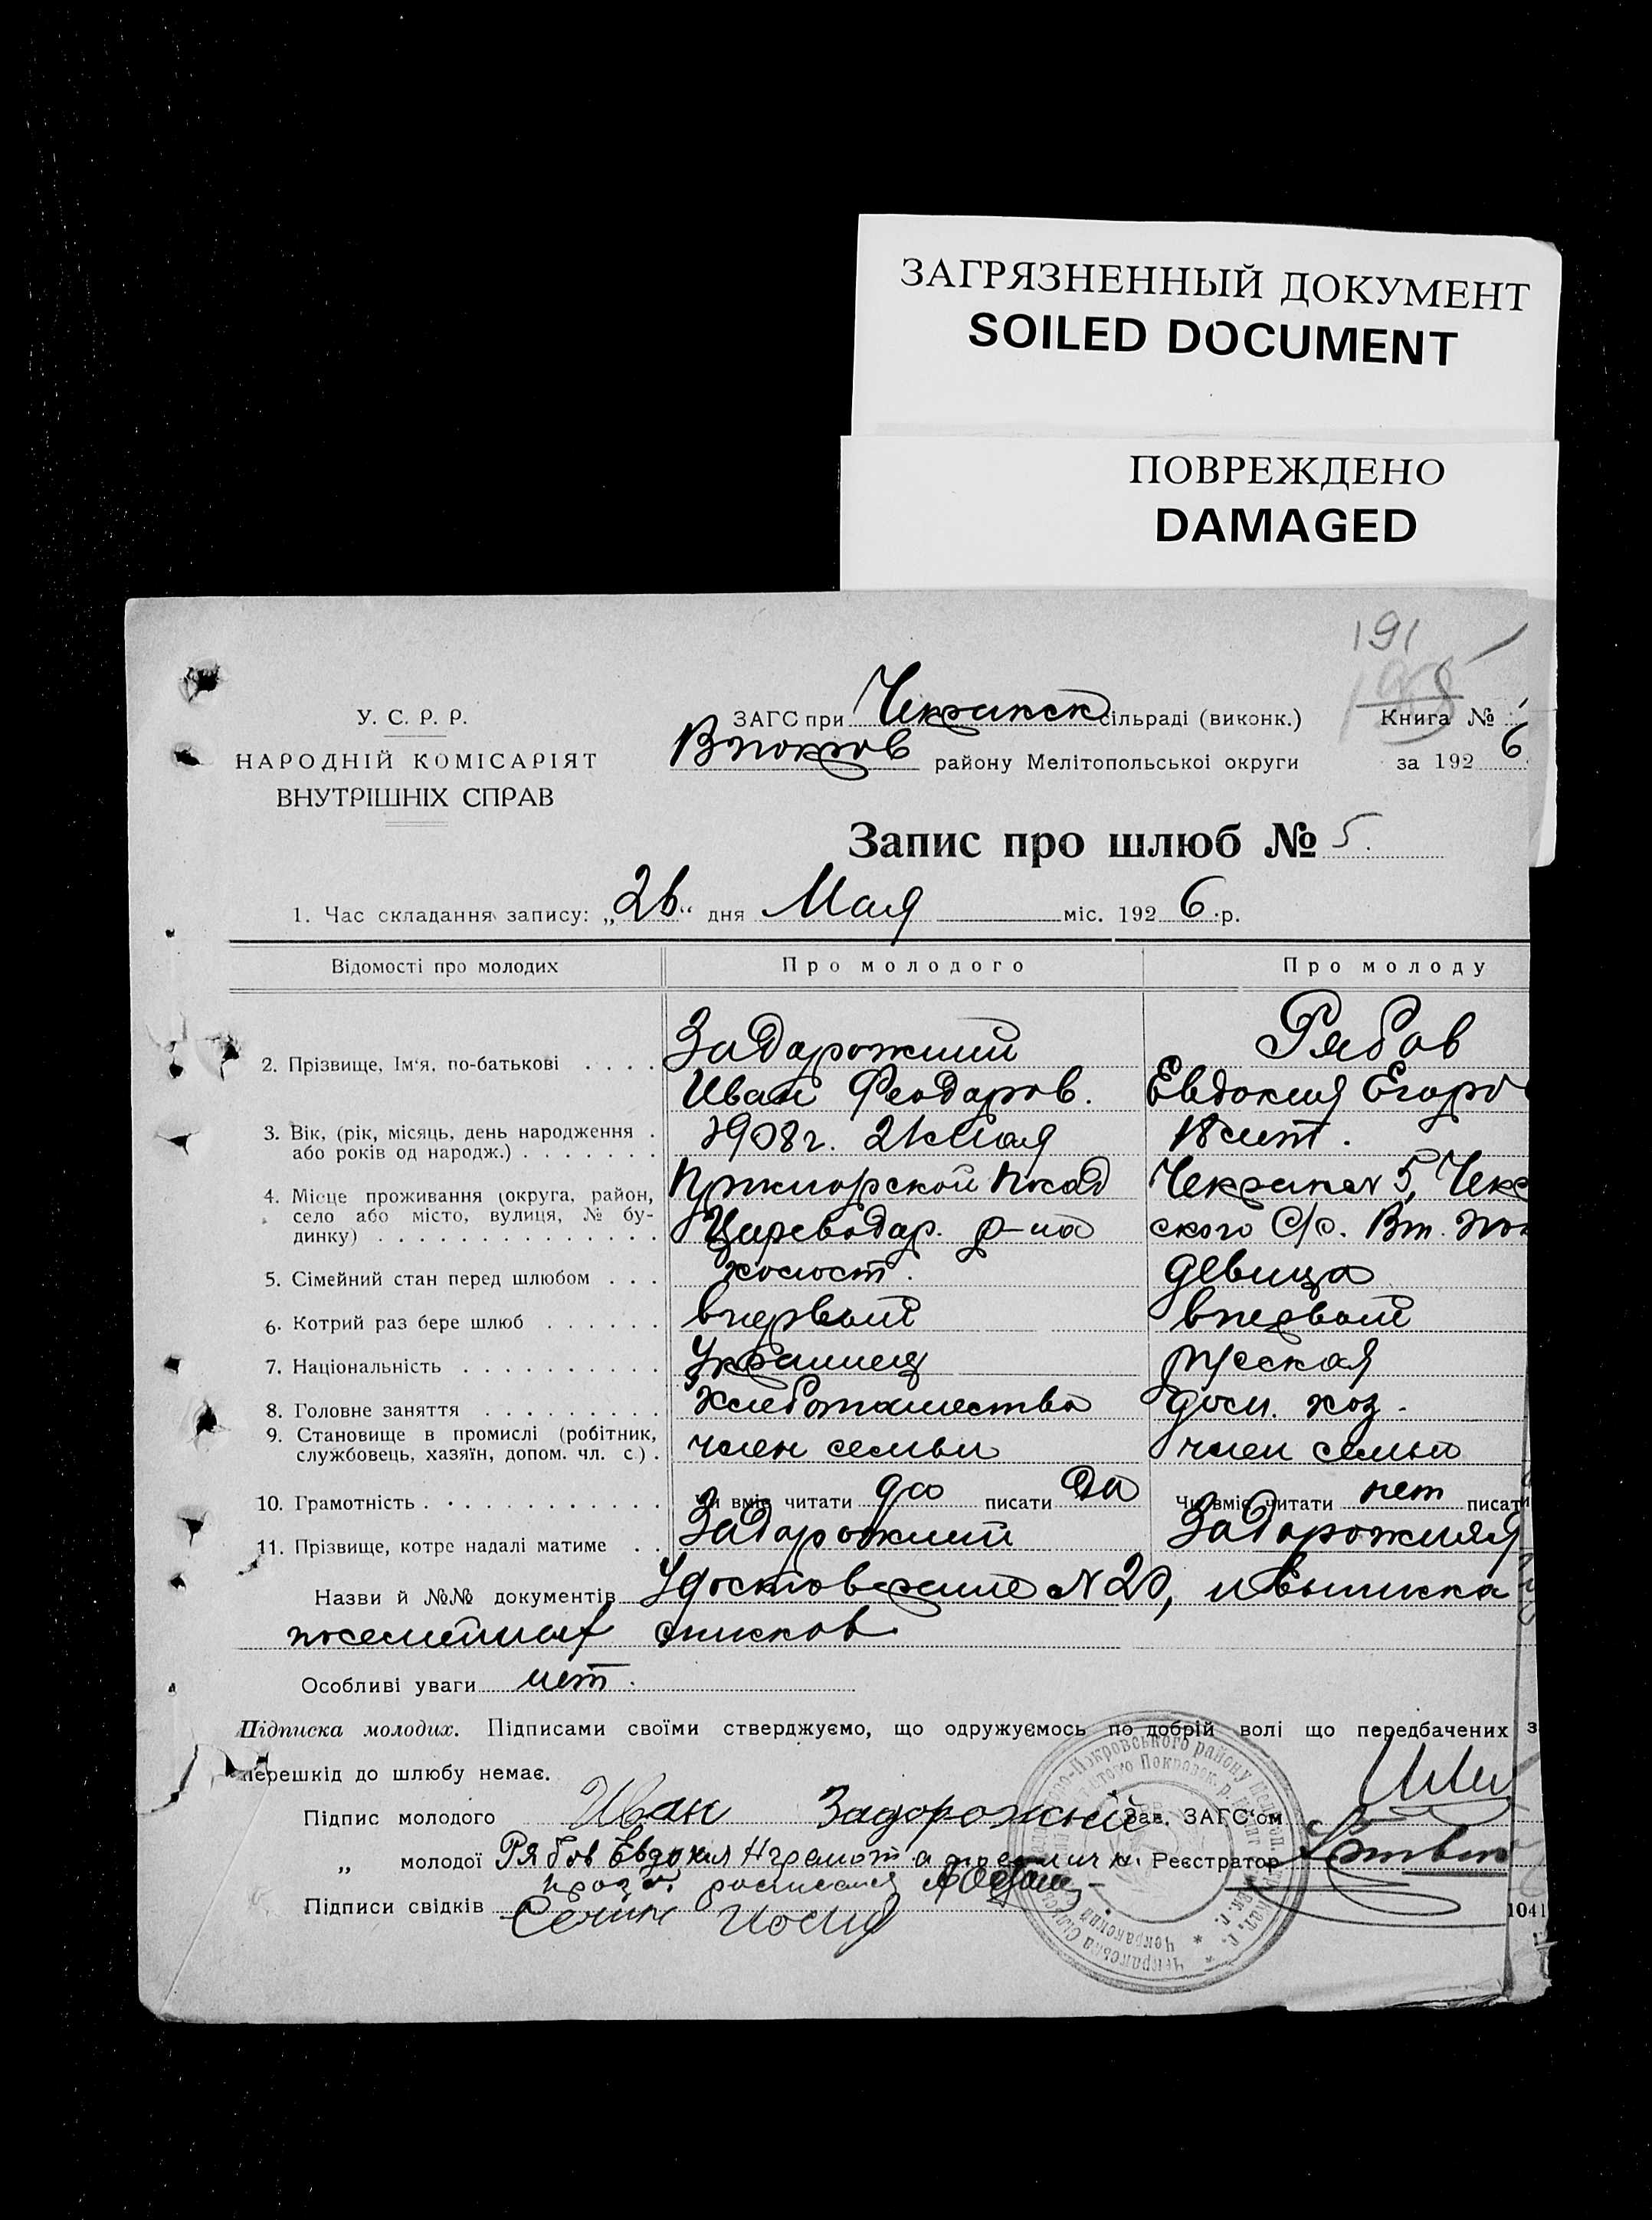 ЗАГРЯЗНЕННЫЙ ДОКУМЕНТ
SOILED DOCUMENT
ПОВРЕЖДЕНО
DAMAGED
191
У. С. Р. Р.
НАРОДНІЙ КОМІСАРІЯТ
ВНУТРІШНІХ СПРАВ
ЗАГС при Чекракск сільраді (виконк.)
Впокров району Мелітопольської округи
Книга №
за 1926
Запис про шлюб № 5.
1. Час складання запису: „26“ дня Мая міс. 1926 р.
Відомості про молодих Про молодого Про молоду
2. Прізвище, Ім'я, по-батькові . . . . Задорожний Рябов
Иван Феодоров. Евдокия Егоро
3. Вік, (рік, місяць, день народження . 1908 г. 21 Мая 18 лет.
або років од народж.) . . . . . . .
4. Місце проживання (округа, район, Приморской Посад Чекрак N 5, Чекр
село або місто, вулиця, № бу- Цареводар. р-на ского С/с. Вт. Пок
динку) . . . . . . . . . . . . . .
5. Сімейний стан перед шлюбом . . . холост. девица
6. Котрий раз бере шлюб . . . . . . впервый впервый
7. Національність . . . . . . . . . . Украинец русская
8. Головне заняття . . . . . . . . . Хлебопашество дом. хоз.
9. Становище в промислі (робітник, член семьи член семьи
службовець, хазяїн, допом. чл. с.) .
10. Грамотність . . . . . . . . . . . Чи вміє читати да писати да Чи вміє читати нет писати
11. Прізвище, котре надалі матиме . . Задорожний Задорожняя
Назви й №№ документів Удостоверение N 20, и выписка
посемейных списков
Особливі уваги нет.
Підписка молодих. Підписами своїми стверджуємо, що одружуємось по добрій волі що передбачених з
перешкід до шлюбу немає.
Підпис молодого Иван Задорожний Зав. ЗАГС'ом
„ молодої Рябов Евдокия Реєстратор
расписался
Підписи свідків
1041